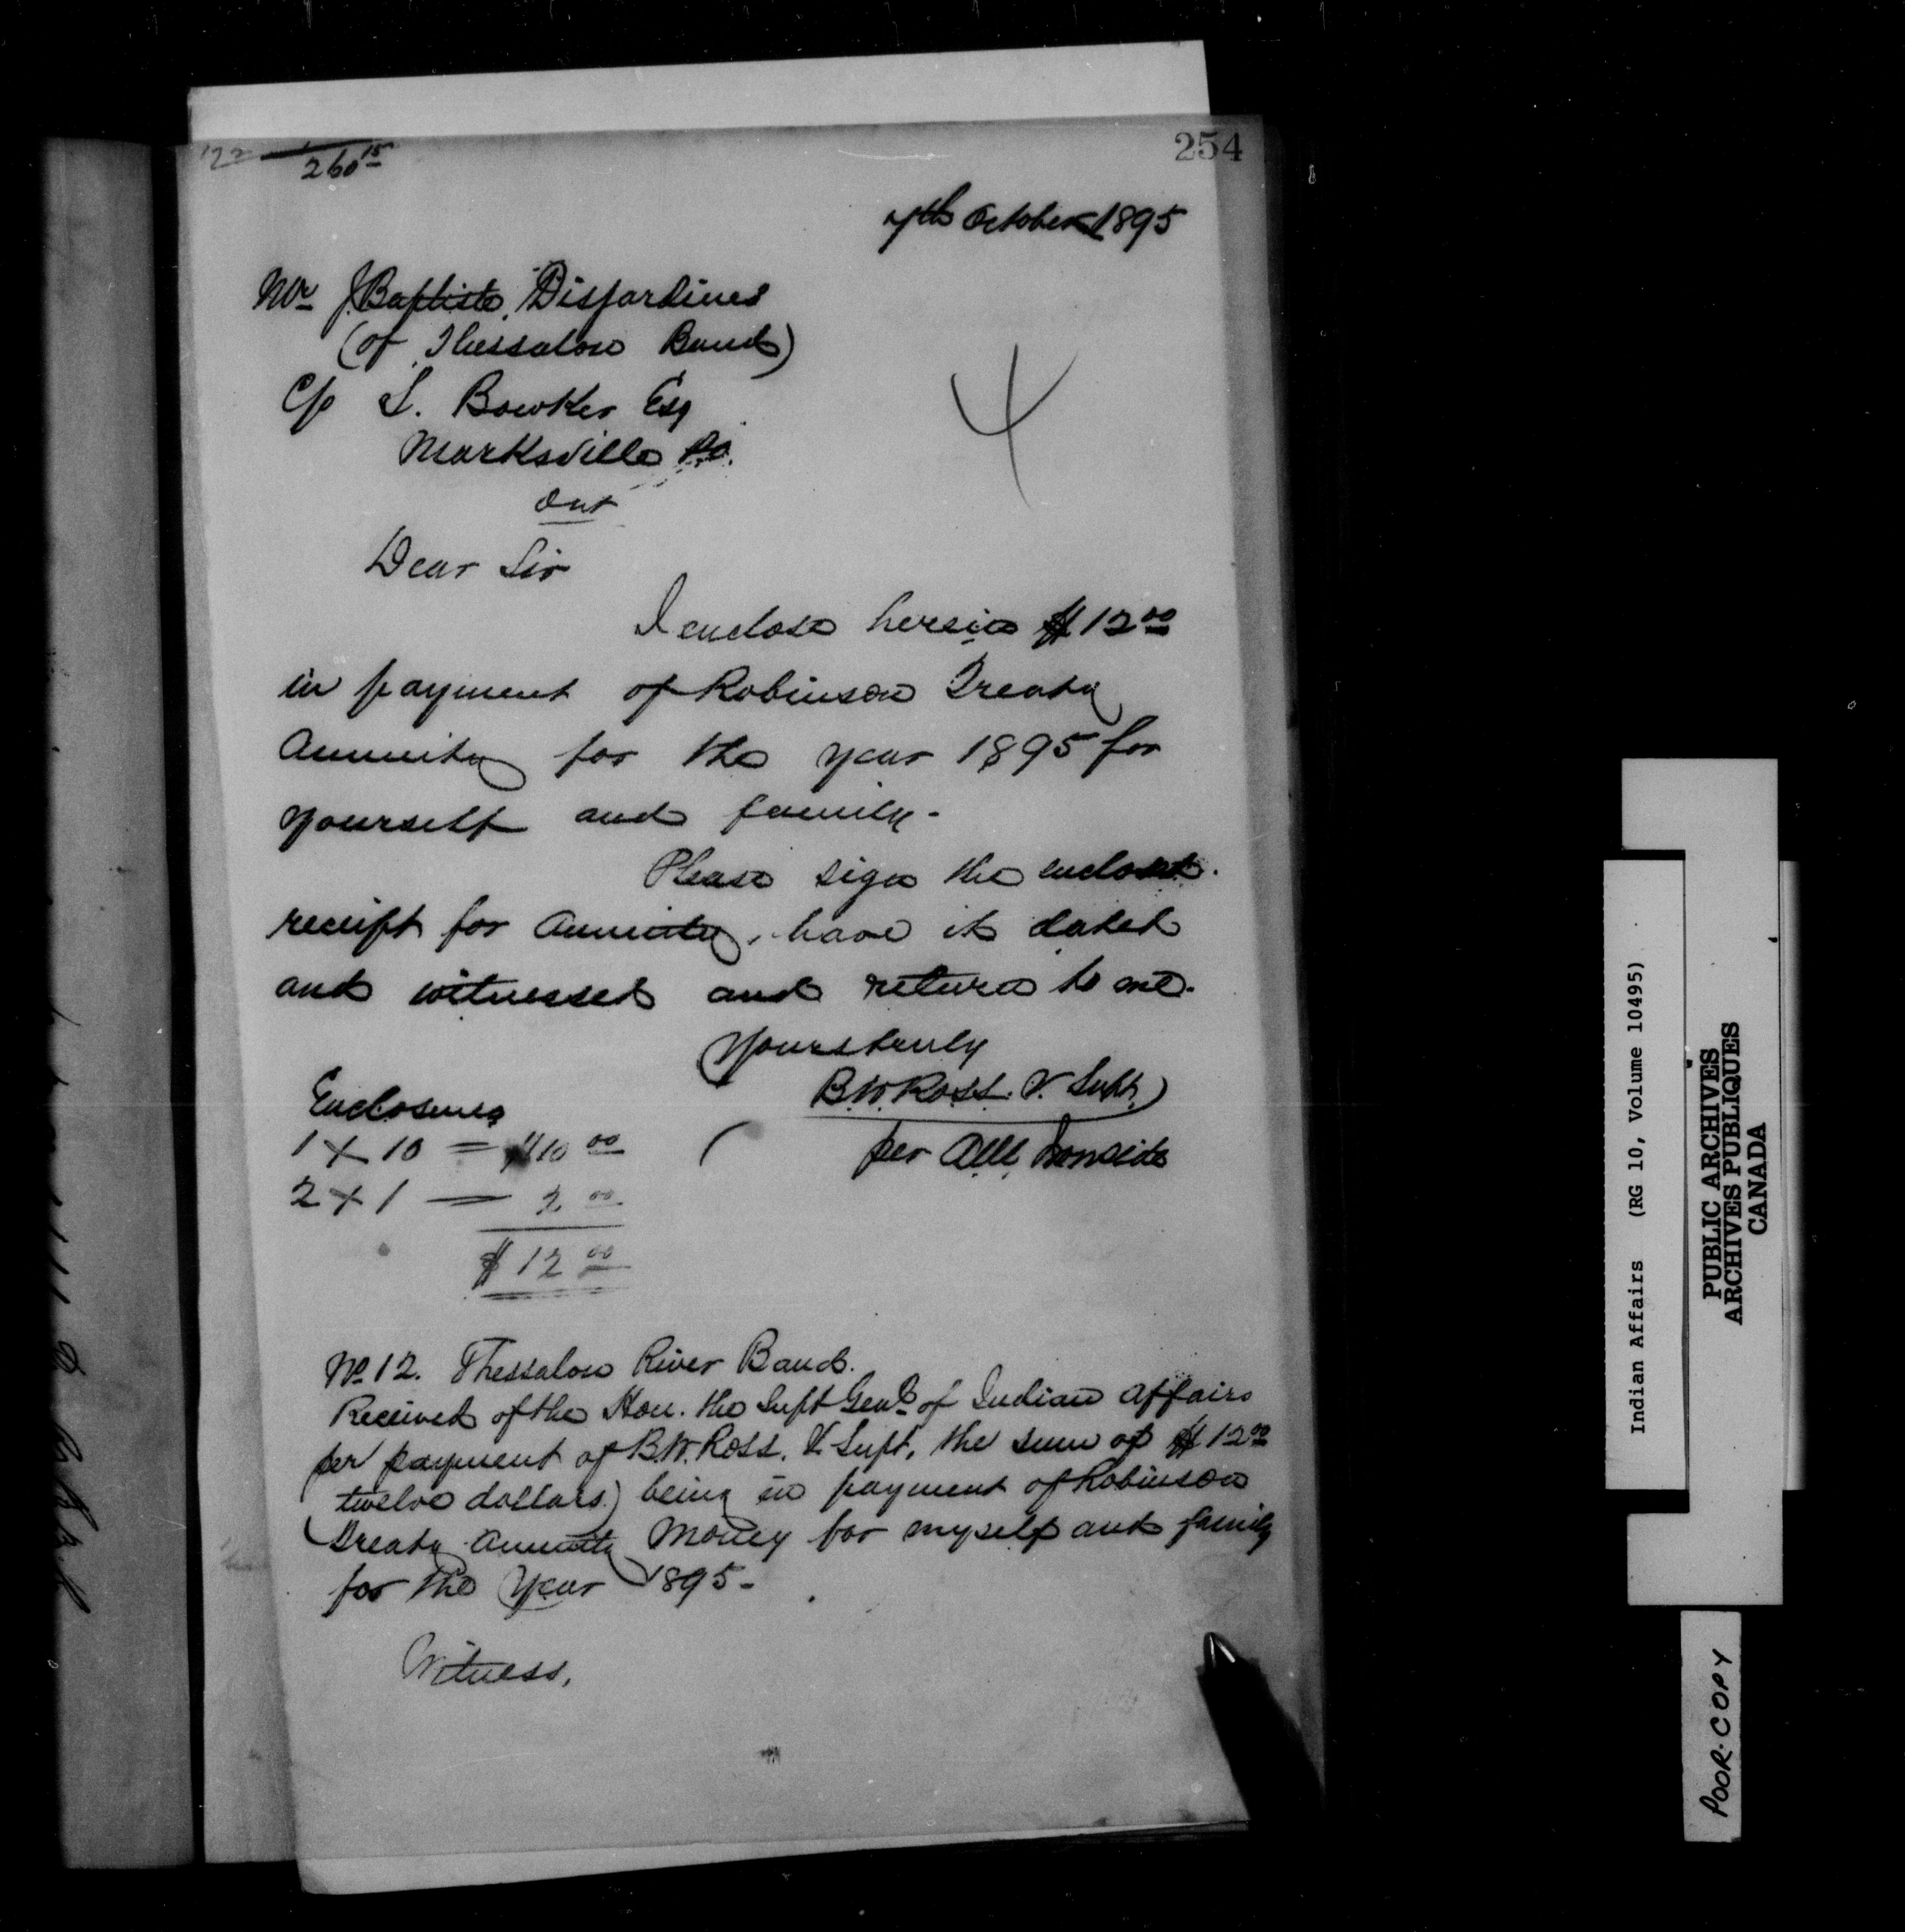 254
122
260 15
7th October 1895
Mr J. Baptiste Disjardines
(of Thessalon Band)
C/o S. Bowker Esq
Marksville P.O.
Ont
Dear Sir
I enclose herein $12 00
in payment of Robinson Treaty
Annuity for the year 1895 for
yourself and family.
Please sign the enclosed
receipt for Annuity, have it dated
and witnessed and return to me.
Yours truly
B.W. Ross. V. Supt.
per
Enclosures
1 x 10 = $10 00
2 x 1 — 2 00
$ 12 00
4
No 12. Thessalon River Band.
Received of the Hon. the Supt Genl of Indian Affairs
per payment of B.W. Ross. V. Supt, the sum of $12 00
twelve dollars) being in payment of Robinson
Treaty Annuity Money for myself and family
for the Year 1895-
Witness,
Indian Affairs (RG 10, Volume 10495)
PUBLIC ARCHIVES
ARCHIVES PUBLIQUES
CANADA
POOR COPY